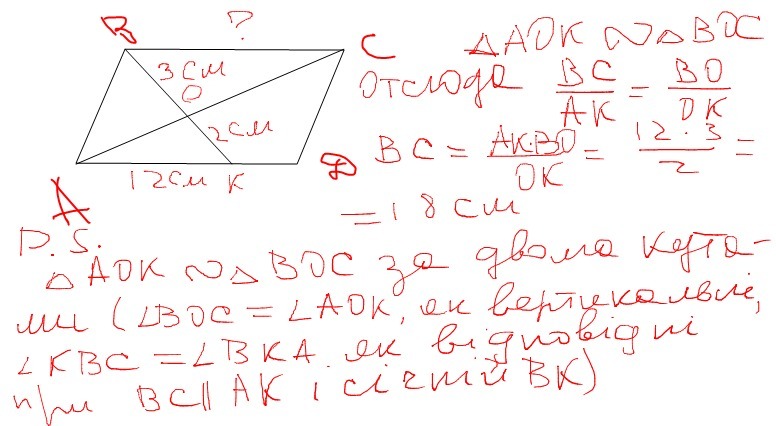 B ? C
3см
O
2см
12см K
A D
△AOK ∾ △BOC
отсюда BC/AK = BO/OK
BC = AK·BO/OK = 12·3/2 =
= 18 см
P.S.
△AOK ∾ △BOC за двома кута-
ми (∠BOC = ∠AOK, як вертикальні,
∠KBC = ∠BKA як відповідні
при BC∥AK і січній BK)